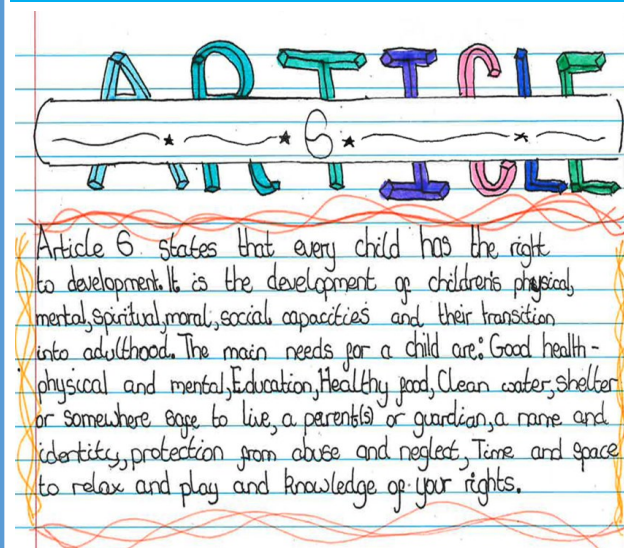 ARTICLE
6
Article 6 states that every child has the right
to development. It is the development of children's physical,
mental, spiritual, moral, social capacities and their transition
into adulthood. The main needs for a child are: Good health -
physical and mental, Education, Healthy food, Clean water, Shelter
or somewhere safe to live, a parent(s) or guardian, a name and
identity, protection from abuse and neglect, Time and space
to relax and play and knowledge of your rights.